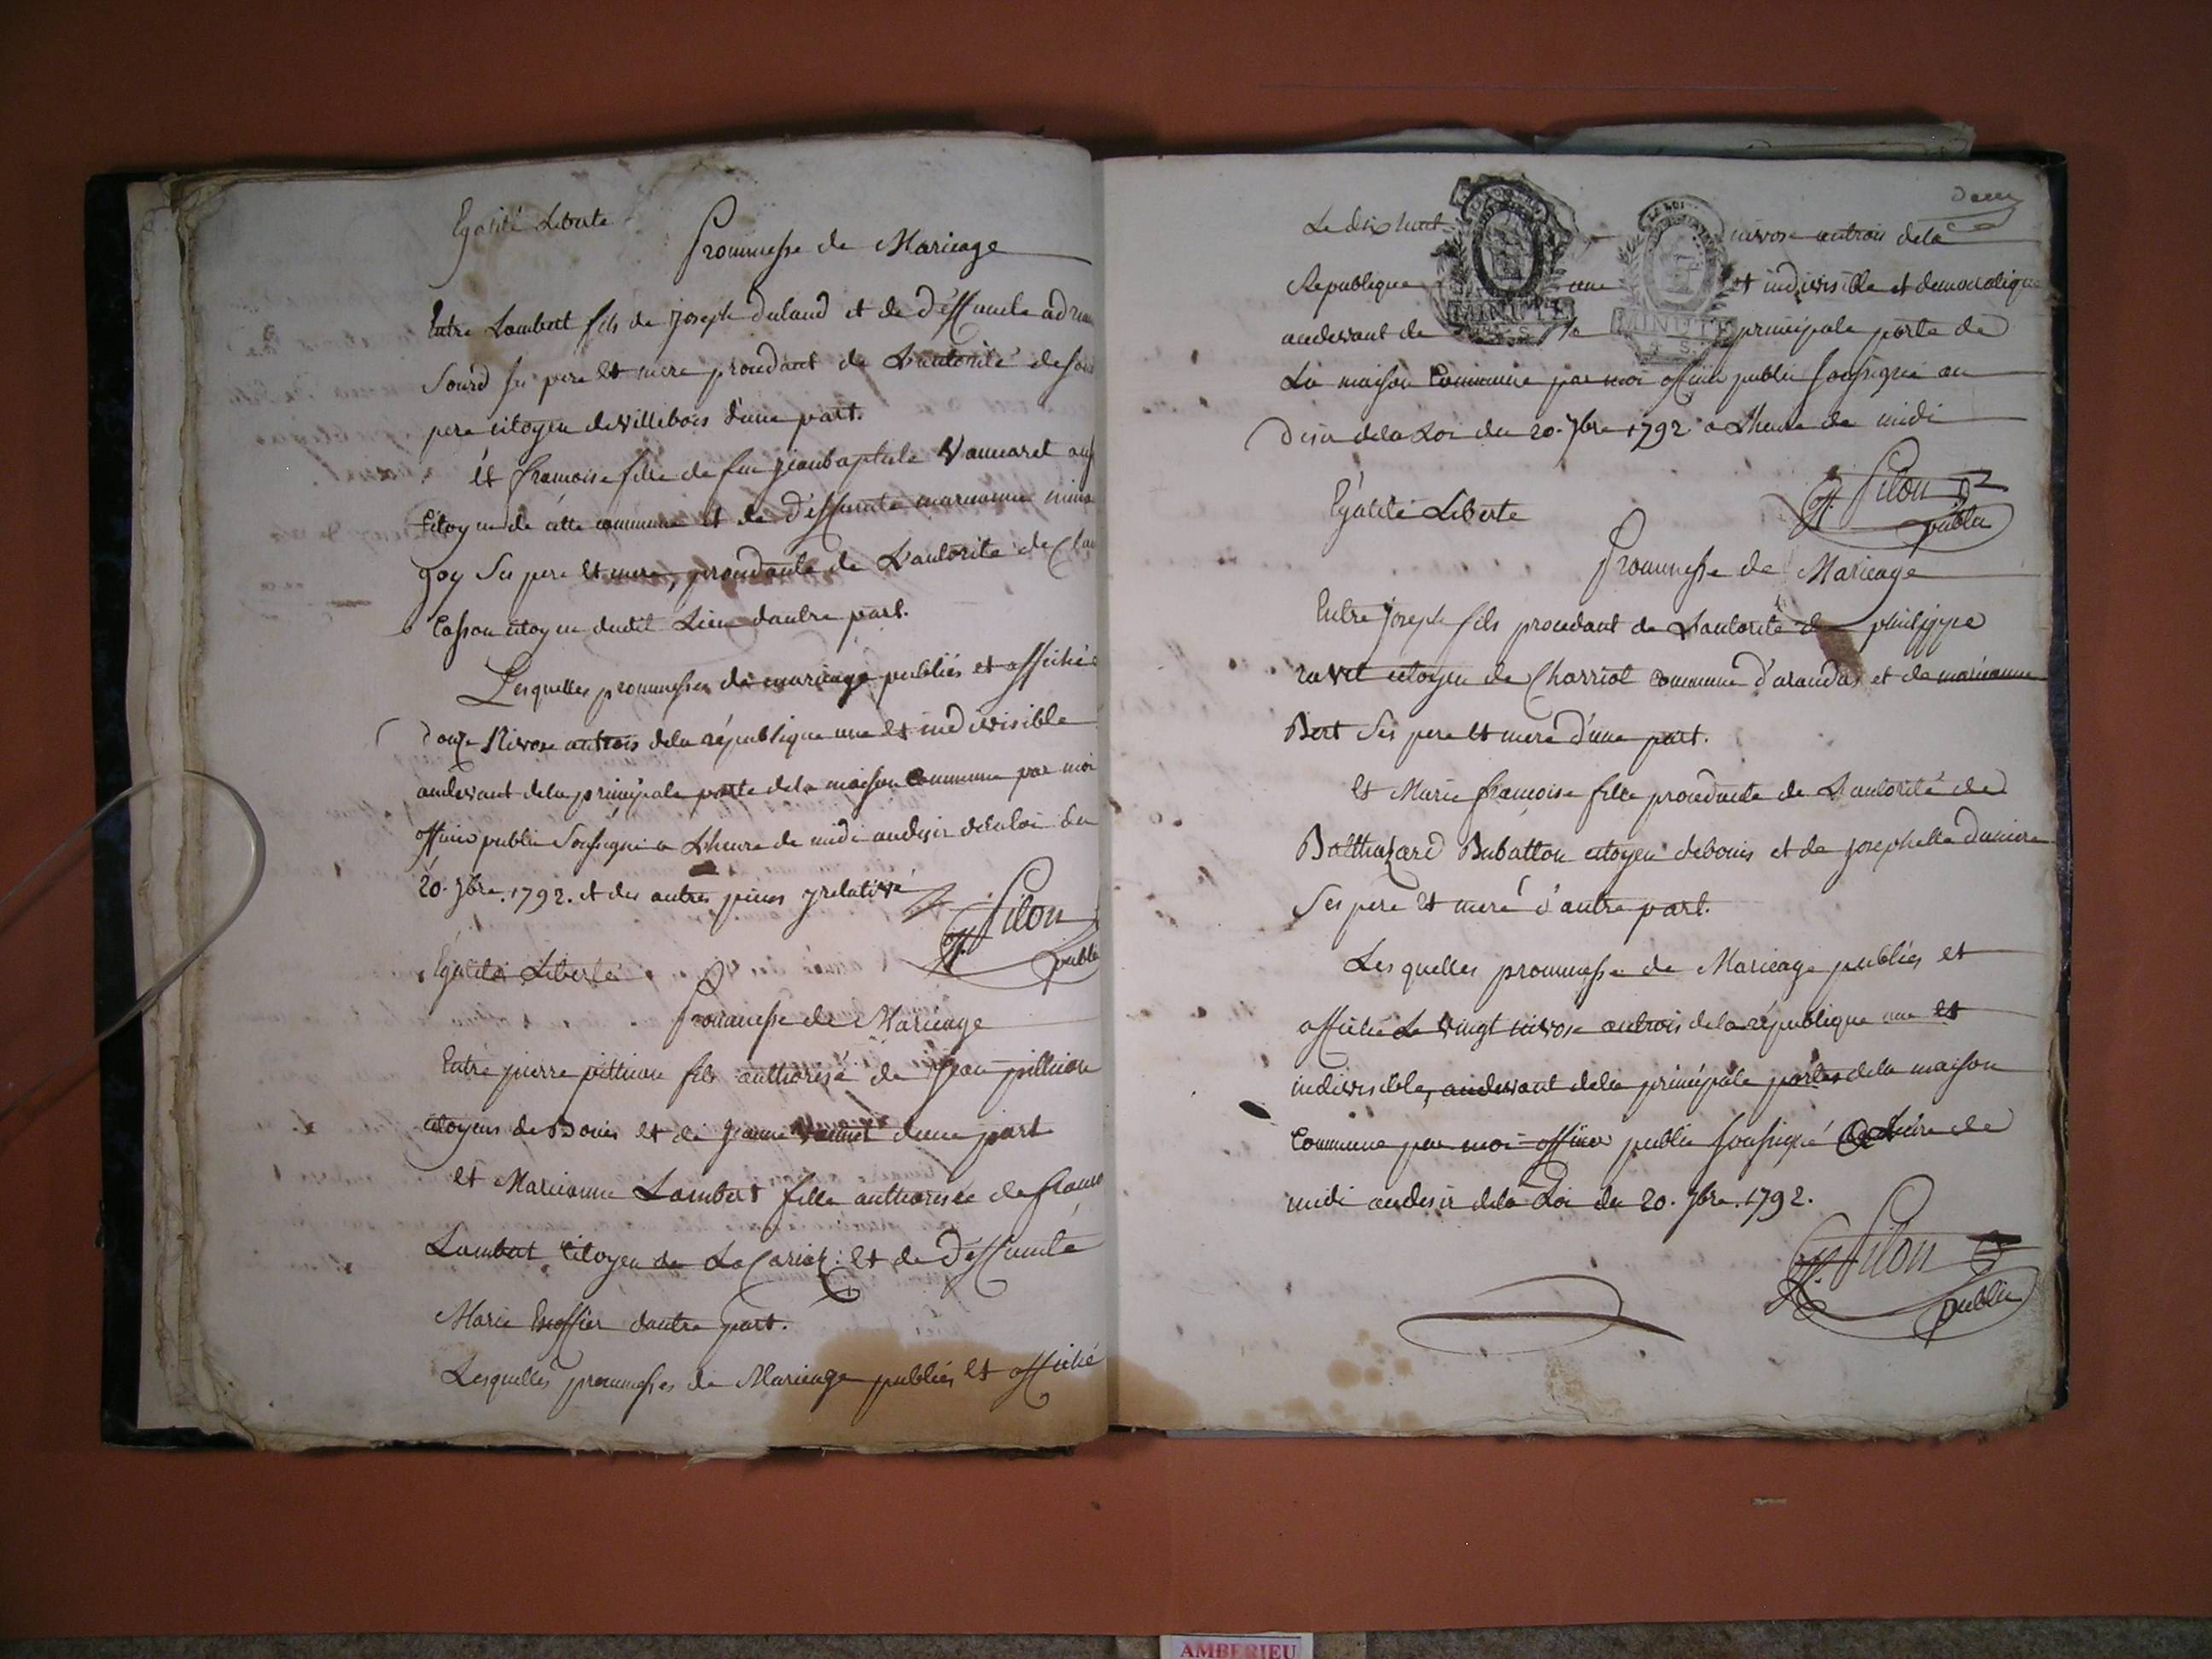 Egalité Liberte
Prommesse de Mariage
Entre Lambert fils de joseph duland et de deffunte
Sourd ses pere et mere procedant de Lautorité de son
pere citoyen de villebois d'une part.
et francoise fille de feu jeanbaptiste Vannaret
Citoyen de cette commune et de deffunte marianne
goy Ses pere et mere, procedante de L'autorité de
Casson citoyen dudit Lieu dautre part.
Lesquelles prommesses de mariage publiés et affiché
douze Nivose antrois dela république une et indivisible
audevant dela principale porte dela maison Commune par moi
officier public Soussigné a Lheure de midi audesir delaloi du
20. 7bre. 1792. et des autres y relative
Off. Pilon
public
Egalité Liberté
Prommesse de Mariage
Entre pierre pittion fils authorisé de jean pittion
citoyens de Bouis et de jeanne dune part
et Marianne Lambert fille authorisée de
Lambert Citoyen de La et de Deffunte
Marie dautre part.
Lesquelles prommesses de Mariage publiés et affiché
deux
Le dix huit nivose antrois dela
Republique une et indivisible et democratique
audevant de la principale porte de
La maison Commune par moi officier public soussigné au
desir dela Loi du 20. 7bre 1792 a Lheure de midi
LA LOI
MINUTE
LA LOI
MINUTE
Off. Pilon
public
Egalité Liberte
Prommesse de Mariage
Entre joseph fils procedant de Lautorité de philippe
ravet citoyen de Charriot commune d'arandas et de marianne
Bert Ses pere et mere d'une part.
et Marie francoise fille procedante de L'autorité de
Balthazard Bubatton citoyen debouis et de josephette
Ses pere et mere d'autre part.
Lesquelles prommesse de Mariage publiés et
affiché Le vingt nivose antrois dela république une et
indivisible, audevant dela principale porte dela maison
Commune par moi officier public soussigné a Lheure de
midi audesir dela Loi du 20. 7bre. 1792.
Off. Pilon
public
AMBERIEU